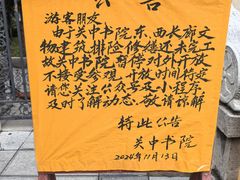 公告
游客朋友
由于关中书院东、西长廊文
物建筑排险修缮还未完工
故关中书院暂停对外开放
不接受参观，开放时间待定
请您关注公众号及小程序
及时了解动态，敬请谅解
特此公告
关中书院
2024年11月13日